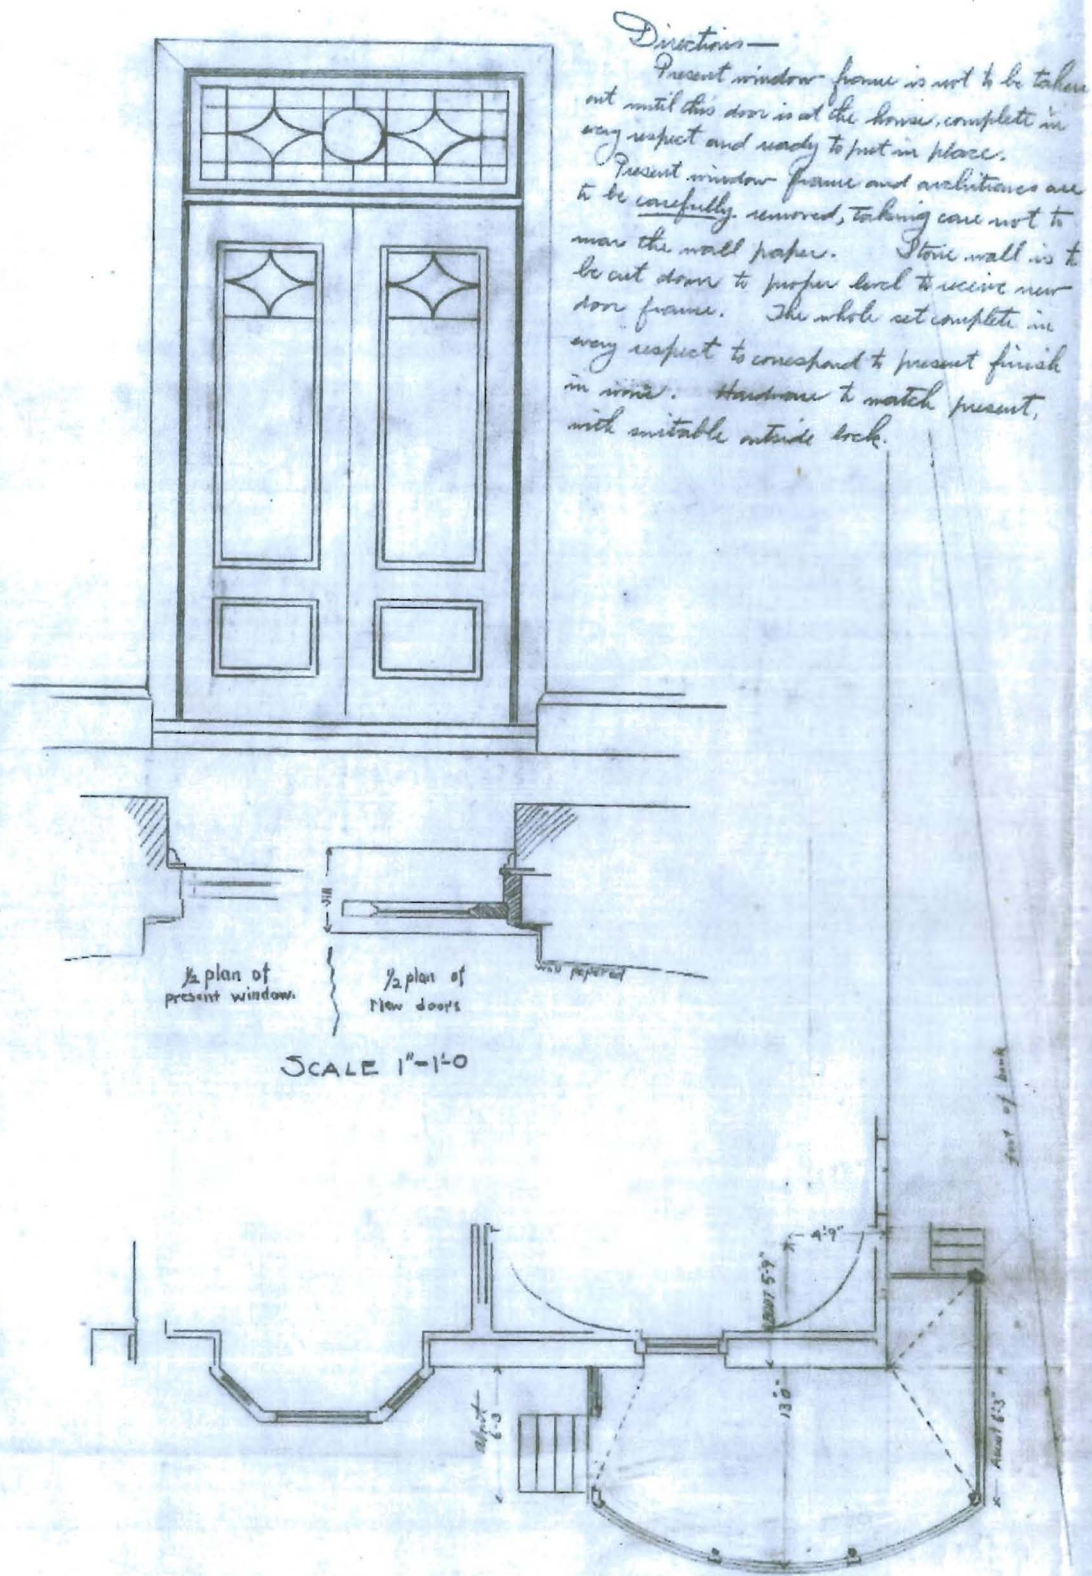 Directions—
Present window frame is not to be taken
out until this door is at the house, complete in
every respect and ready to put in place.
Present window frame and architraves are
to be carefully removed, taking care not to
mar the wall paper. Stone wall is to
be cut down to proper level to receive new
door frame. The whole set complete in
every respect to correspond to present finish
in Hardware to match present,
with suitable outside lock.
Sill
½ plan of
present window.
½ plan of
New doors
Wall papered
SCALE 1"-1'-0
foot of bank
4'-9"
ABOUT 5'-9"
13'0"
about
6-3
About 6'-3"